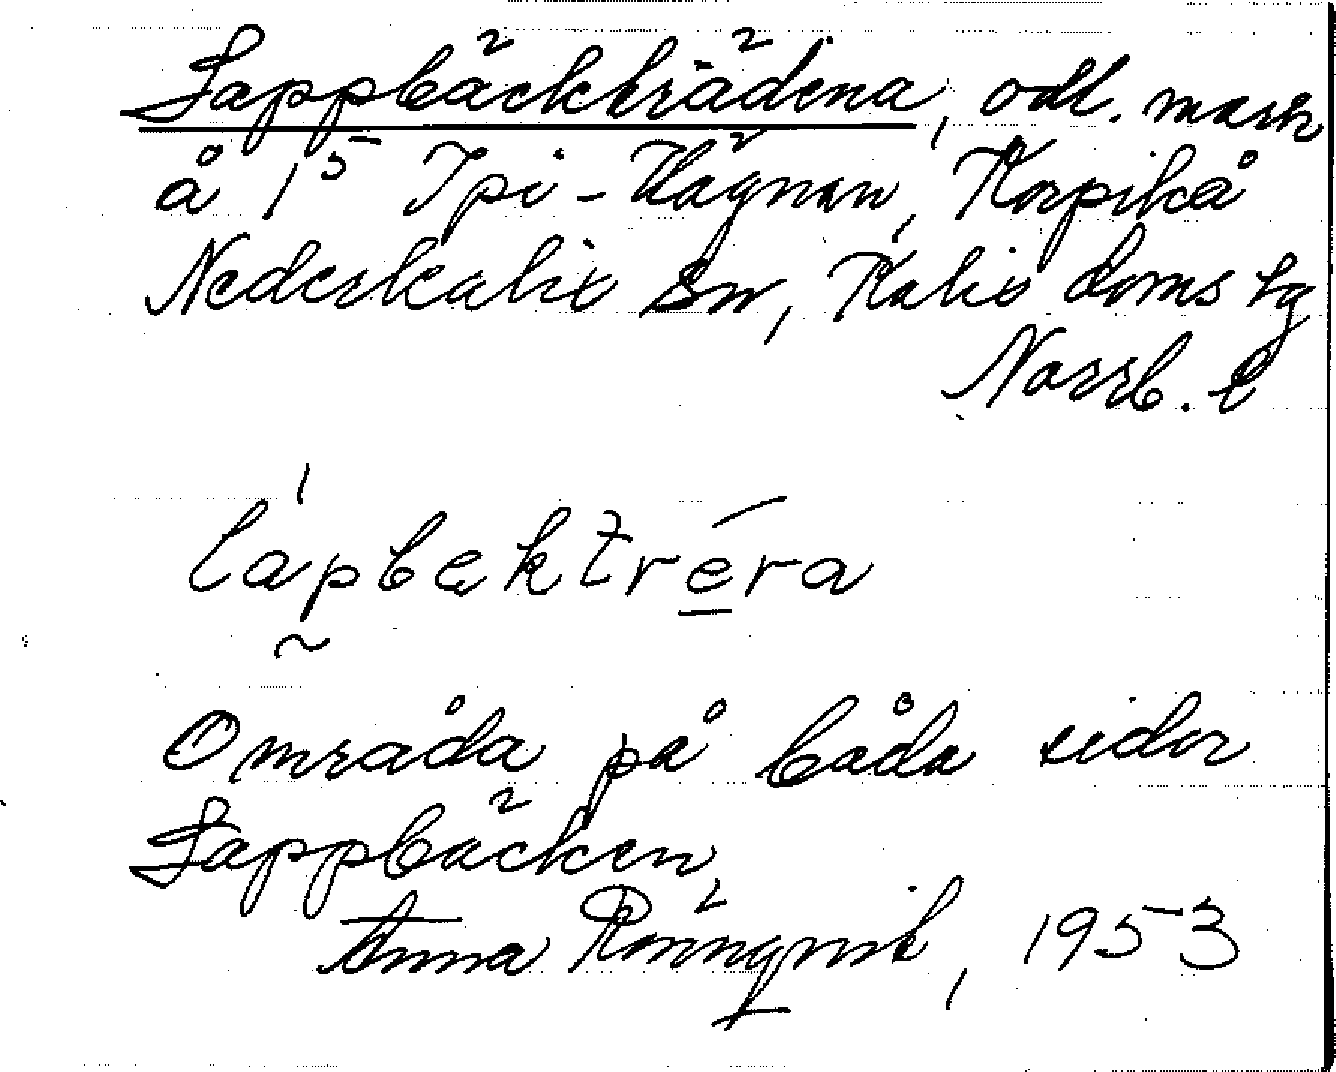 Lappbäckträdena, odl. mark
å 1⁵ Ipi-Hägnan, Korpikå
Nederkalix sn, Kalix doms lg
Norrb. l
lápbektréra
Områda på båda sidor
Lappbäcken,
Anna Rönnqvist, 1953